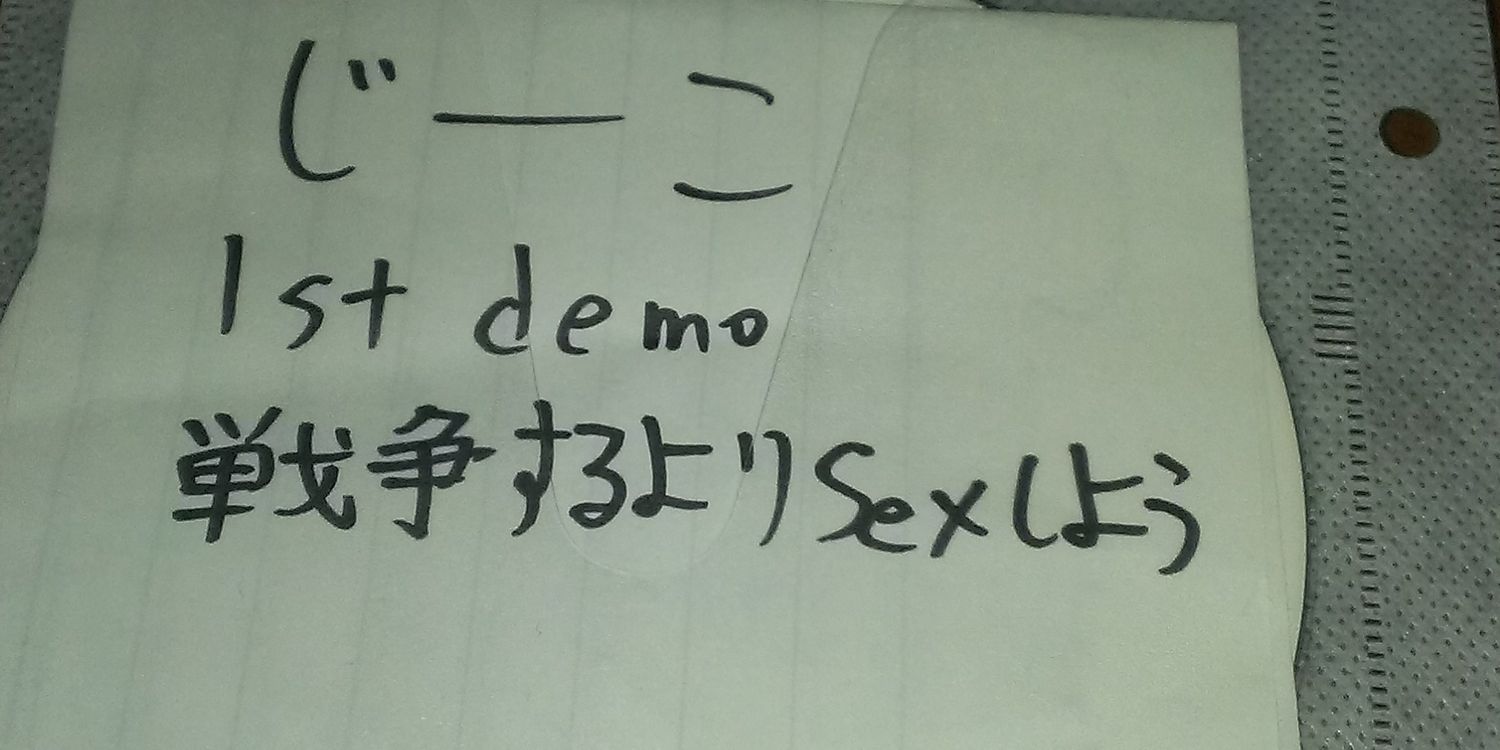 じーこ
1st demo
戦争するよりSexしよう